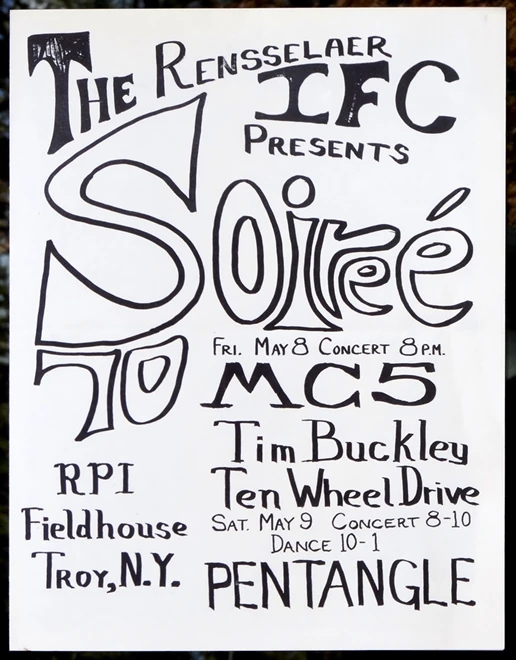 THE RENSSELAER
IFC
PRESENTS
Soireé
70
FRI. MAY 8 CONCERT 8 P.M.
MC5
Tim Buckley
Ten Wheel Drive
SAT. MAY 9 CONCERT 8-10
DANCE 10-1
PENTANGLE
RPI
Fieldhouse
TROY, N.Y.